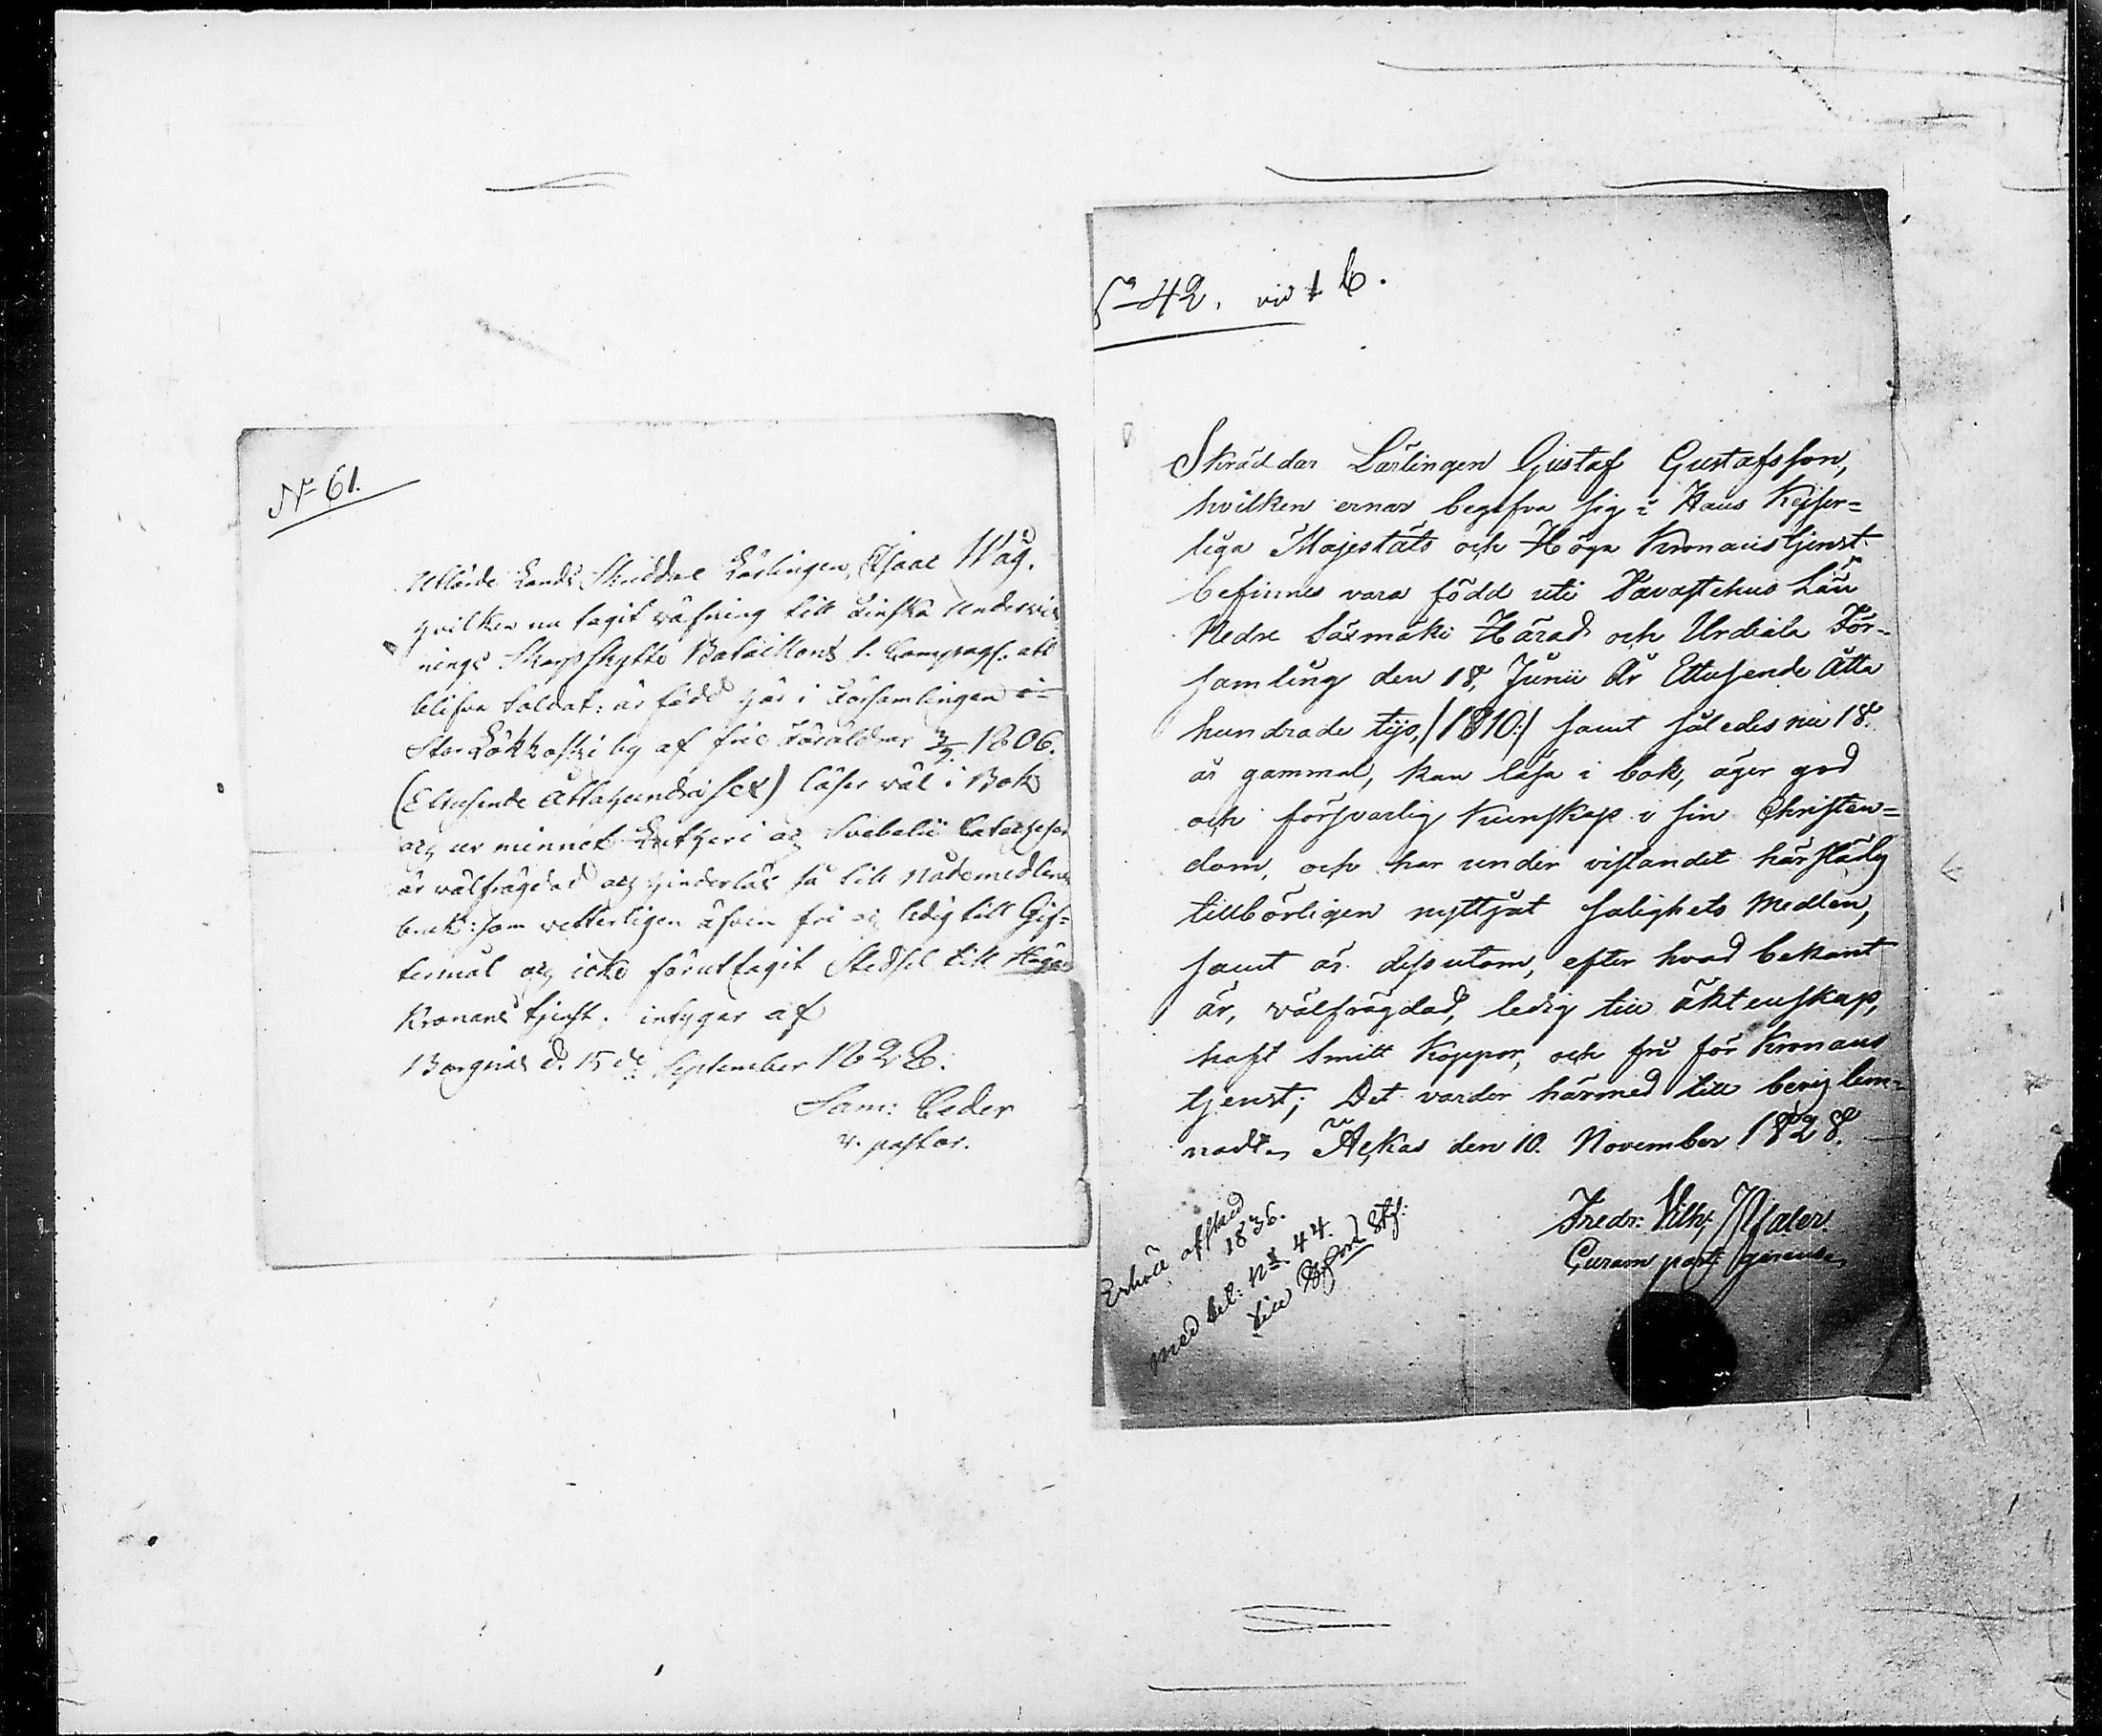 No 61.
Utlärde Lands Skräddare Lärlingen, Isaac Wåg.
hvilken nu tagit värfning till Finska Undervis-
nings Skarpskytte Bataillons 1. Compagi. att
blifva Soldat: är född här i Församlingen i
Stor Lökkoski by af frie Föräldrar 3/9 1806.
(Ettusende Åttahundra sex) läser väl i Bok
och ur minnet Lutheri och Svebelii Catecheser
är välfrägdad och hinderlös så till Nådemedlens
bruk: som vetterligen äfven fri och ledig till Gif-
termål och icke förut tagit Stedsel till Höga
Kronans tjenst. intygar af
Borgnäs d. 15de September 1828.
Sam: Ceder
v. pastor.
No 42. vid 1 C.
Skräddar Lärlingen Gustaf Gustafsson,
hvilken ernar begifva sig i Hans Kejser=
liga Majestäts och Höga Kronans tjenst
befinnes vara född uti Tavastehus Län
Nedre Säxmäki Härad och Urdiala För-
samling den 18, Junii År Ettusende Åtta
hundrade tijo, /:1810:/ samt således nu 18.
år gammal, kan läsa i bok, äger god
och försvarlig Kunskap i sin Christen=
dom, och har under vistandet härstädes
tillbörligen nyttjat salighets Medlen,
samt är dessutom, efter hvad bekant
är, välfrägdad, ledig till äktenskap,
haft Smitt Koppor, och fri för Kronans
tjenst; Det varder härmed till bevis lem-
nadt, Ackas den 10. November 1828.
Fredr: Vilh:
Curam past: gerens.
Erhöll afsked
1836.
med bet: No 44.
till